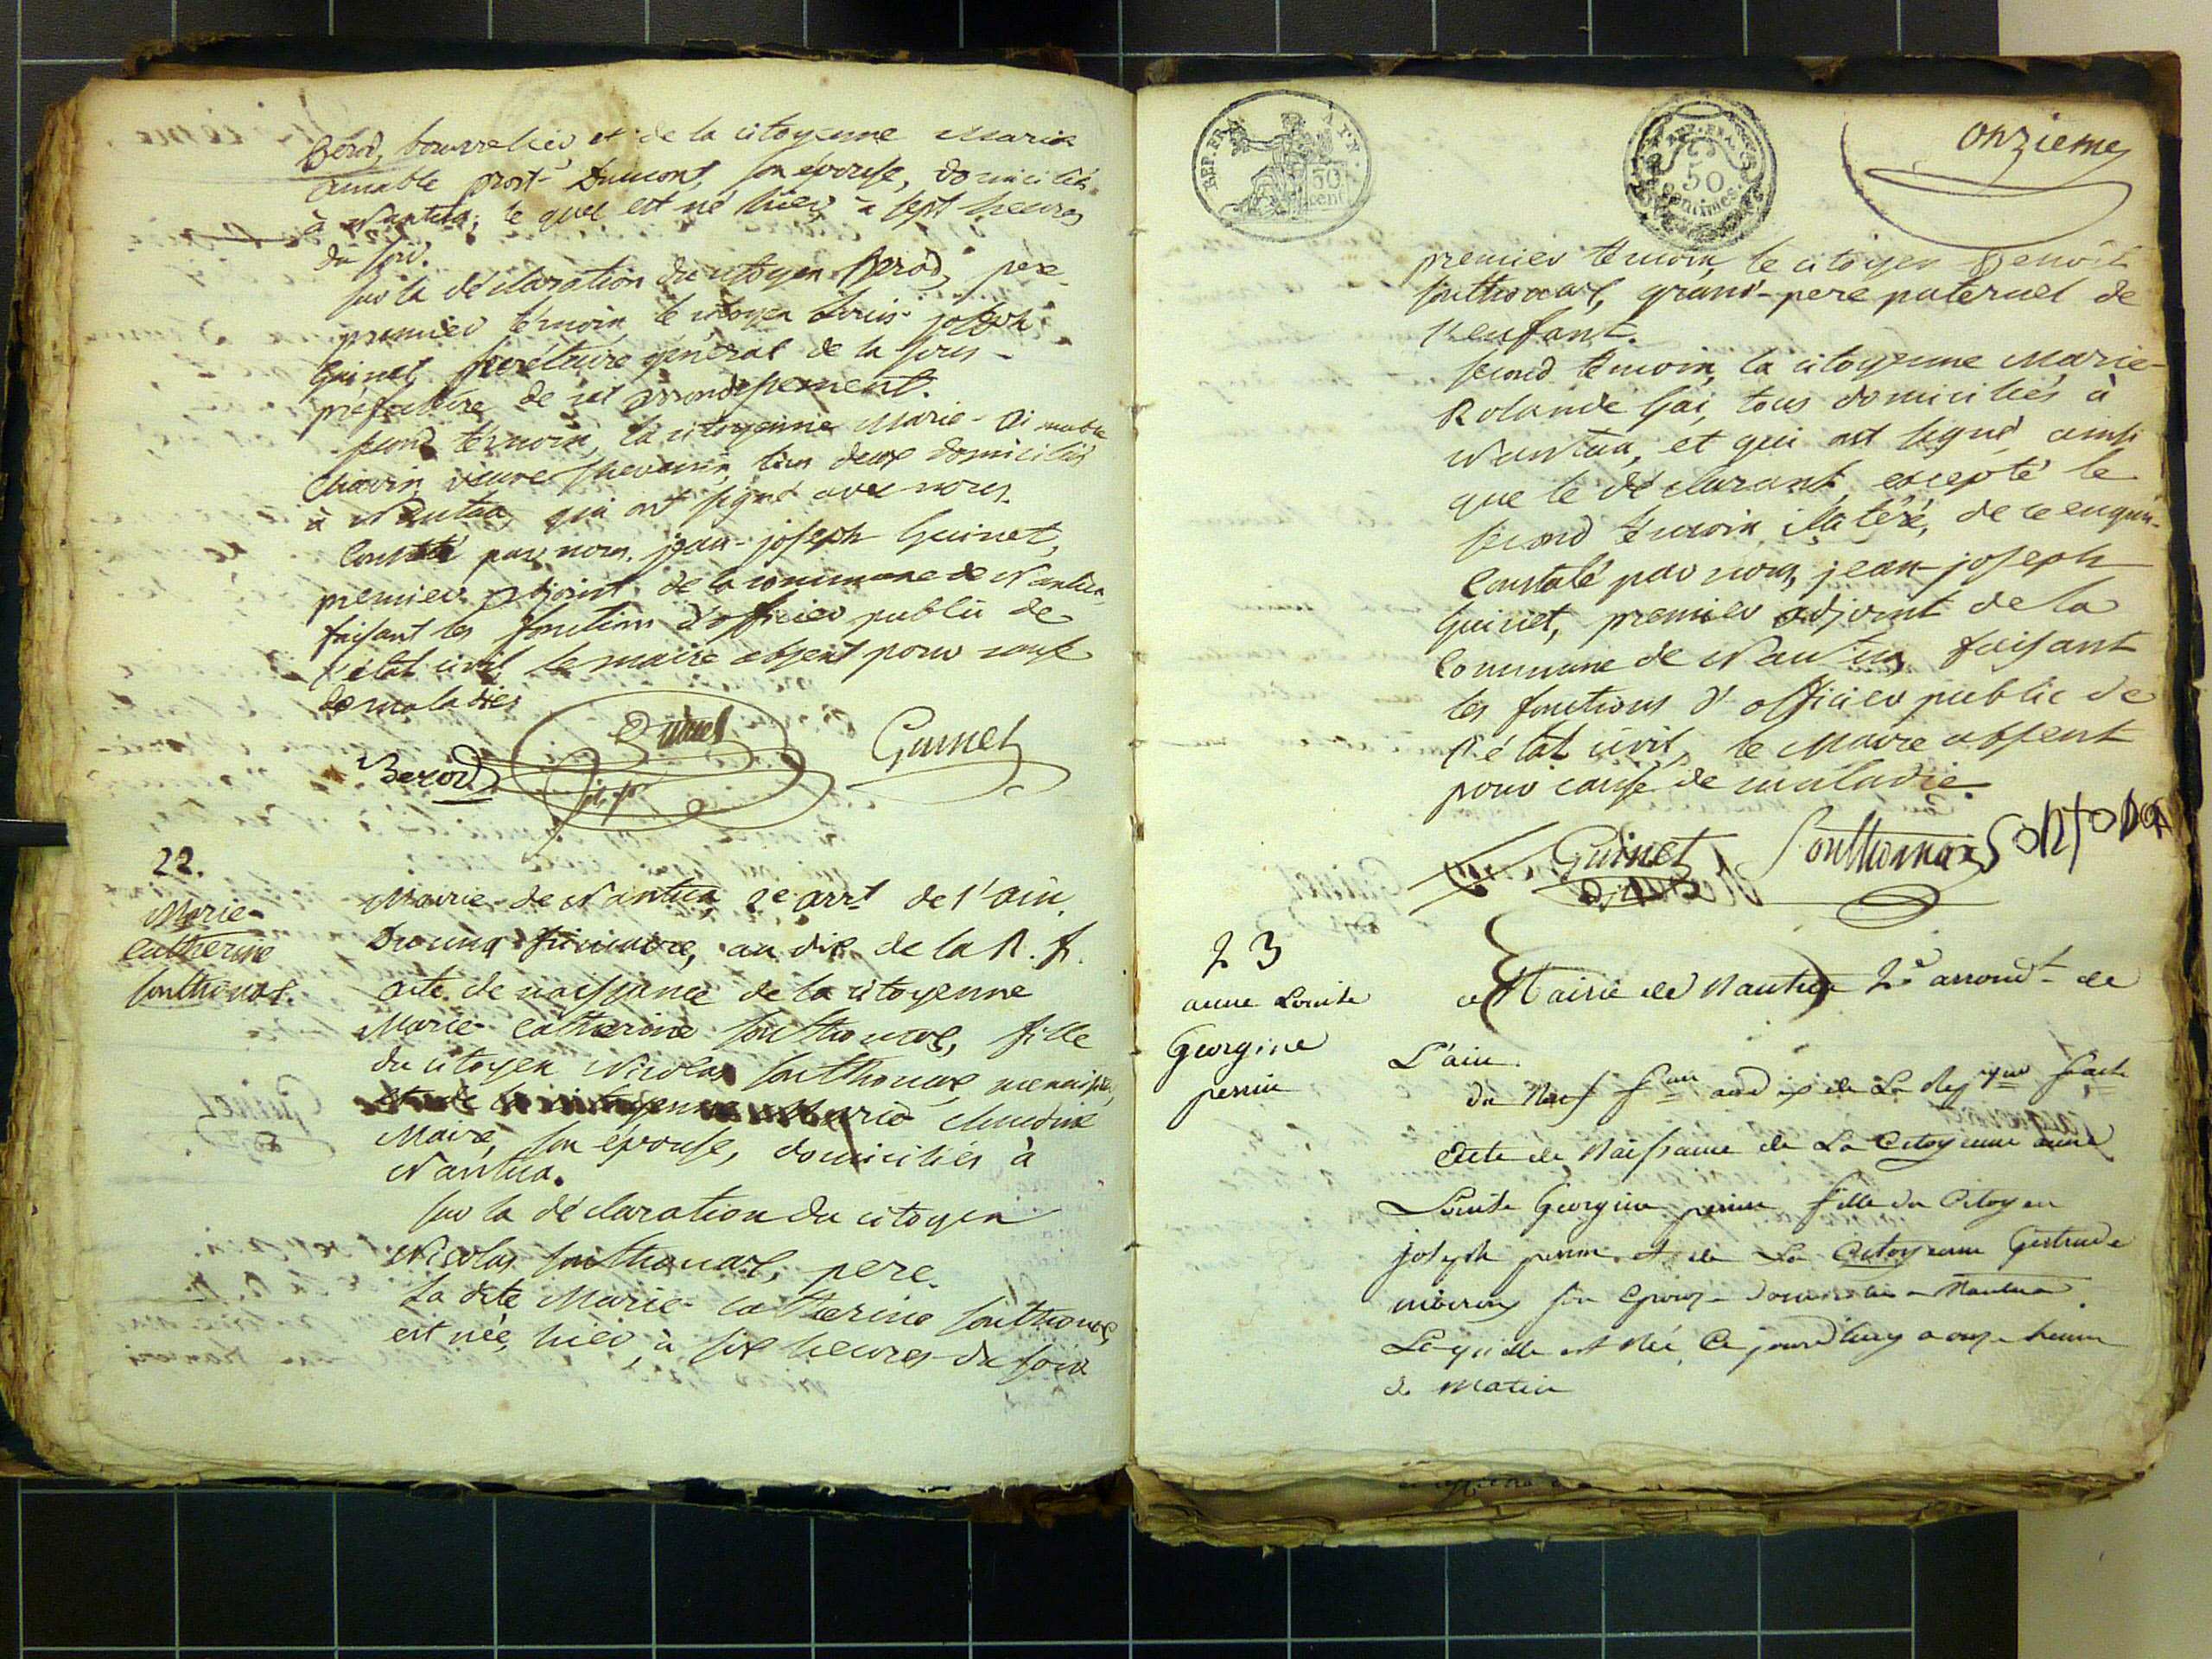 Bérod, bourrelier et de la citoyenne Marie
aimable prost-Dumont, son épouse, domiciliés
à Nantua; le quel est né hier, à sept heures
du soir.
sur la déclaration du citoyen Bérod, pere.
premier témoin, le citoyen Louis-joseph
Guinet, secrétaire général de la sous-
préfecture de cet arrondissement.
second témoin, la citoyenne Marie-Aimable
veuve tous deux domiciliés
à Nantua, qui ont signé avec nous.
Constaté par nous, jean-joseph Guinet,
premier adjoint de la commune de Nantua,
faisant les fonctions d'officier public de
l'état civil, le maire absent pour cause
de maladie.
Berod Guinet Guinet
22.
Marie-
catherine
sonthonax.
Mairie de Nantua, 2e arrt de l'ain.
Du cinq frimaire, an dix de la R. f.
acte de naissance de la citoyenne
Marie-catherine sonthonax, fille
du citoyen Nicolas sonthonax, menuisier,
et de la citoyenne Marie claudine
Maire, son épouse, domiciliés à
Nantua.
sur la déclaration du citoyen
Nicolas sonthonax, pere.
La dite Marie-catherine sonthonax,
est née, hier, à six heures du soir
REP. FRA. 50 cent
REP. FRA. 50 Centimes.
onzieme
premier témoin, le citoyen Benoît
sonthonax, grand-pere paternel de
l'enfant.
second témoin, la citoyenne Marie-
Rolande Gai, tous domiciliés à
Nantua, et qui ont signé, ainsi
que le déclarant, excepté le
second témoin illitéré, de ce enquis.
Constaté par nous, jean-joseph
Guinet, premier adjoint de la
Commune de Nantua, faisant
les fonctions d'officier public de
l'état civil, le Maire absent
pour cause de maladie.
Guinet Sonthonax
adjt
23
anne Louise
Georgine
perrin
Mairie de Nantua 2e arrondt de
L'ain
du Neuf frimre an dix de La Repque francse
Acte de Naissance de La Citoyenne anne
Louise Georgine perrin fille du Citoyen
joseph perrin et de La Citoyenne Gertrude
son Epouse domiciliés a Nantua
Laquelle est Née Ce jourd'huy a onze heures
du matin